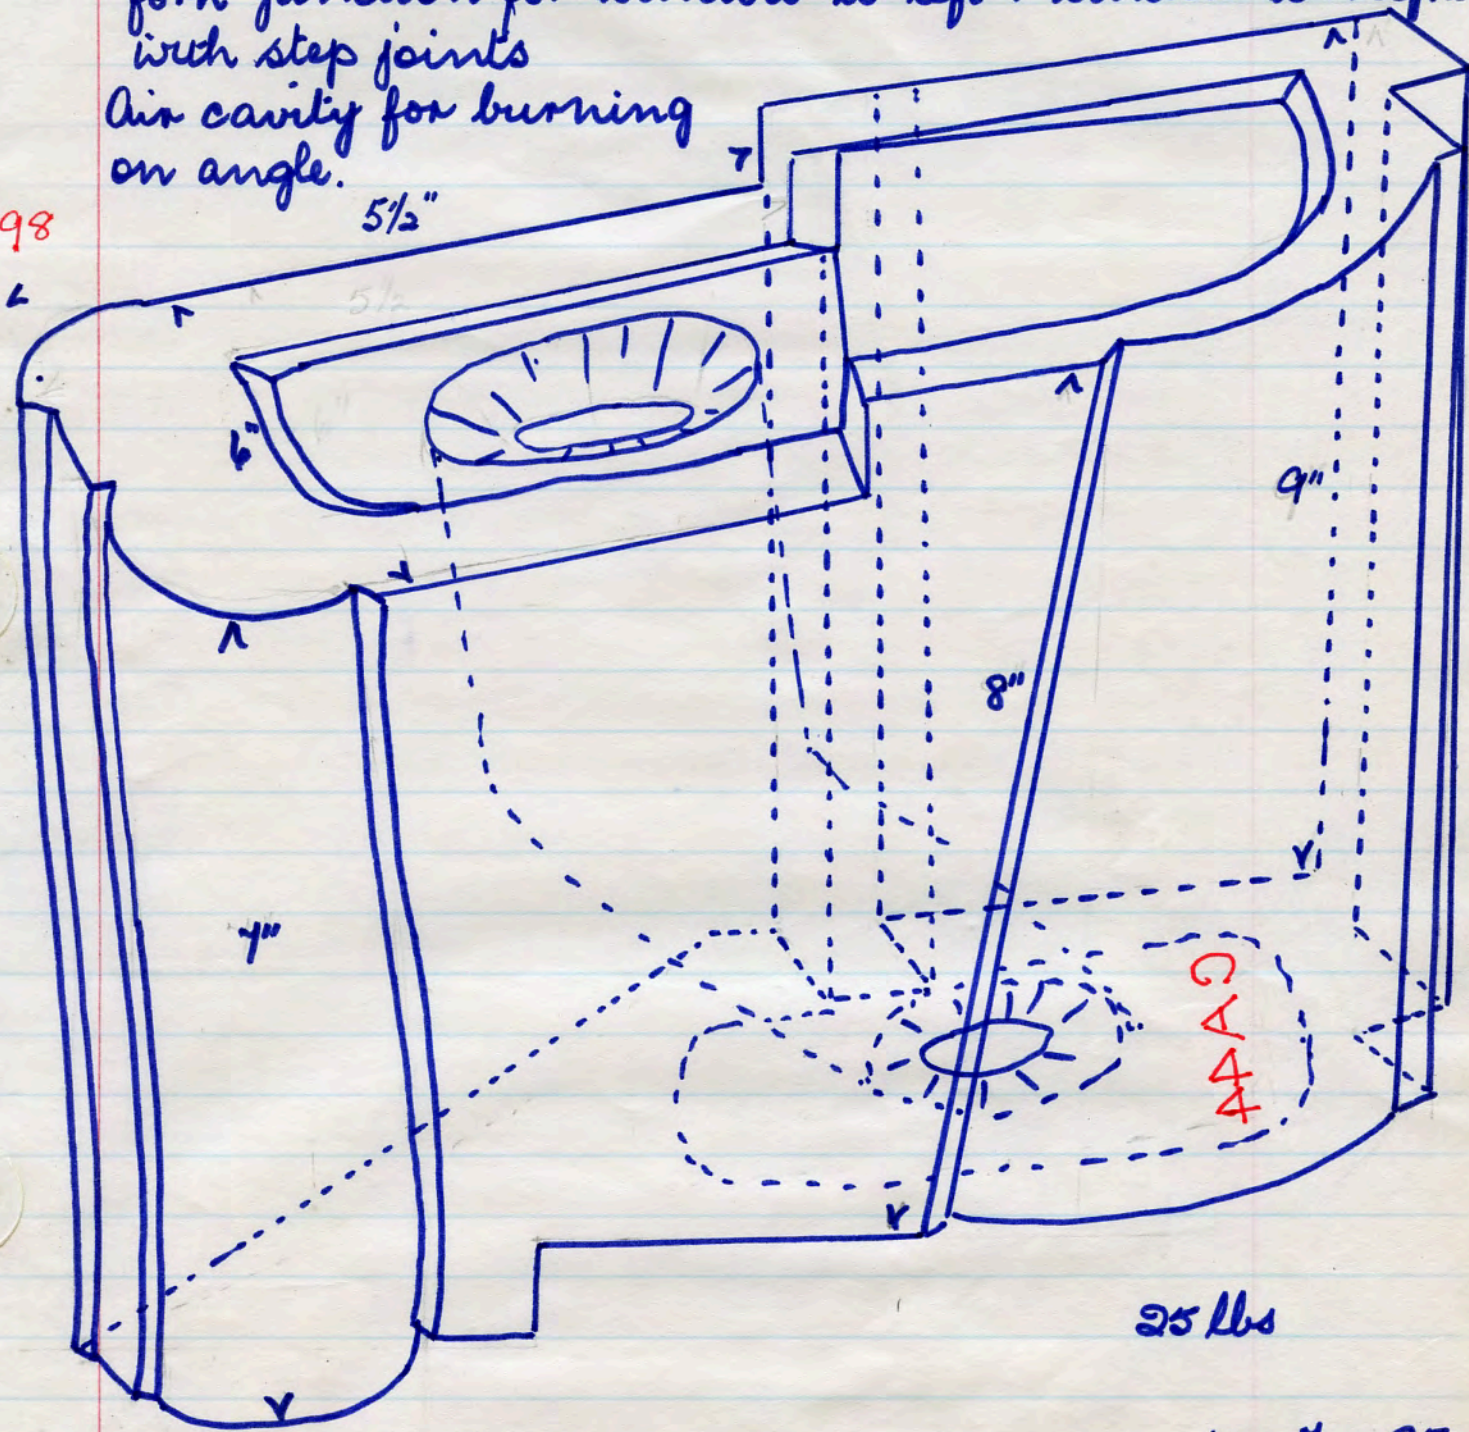 with step joints
Air cavity for burning
on angle.
98
5½"
5½
6"
9"
8"
7"
CAAA
25 lbs